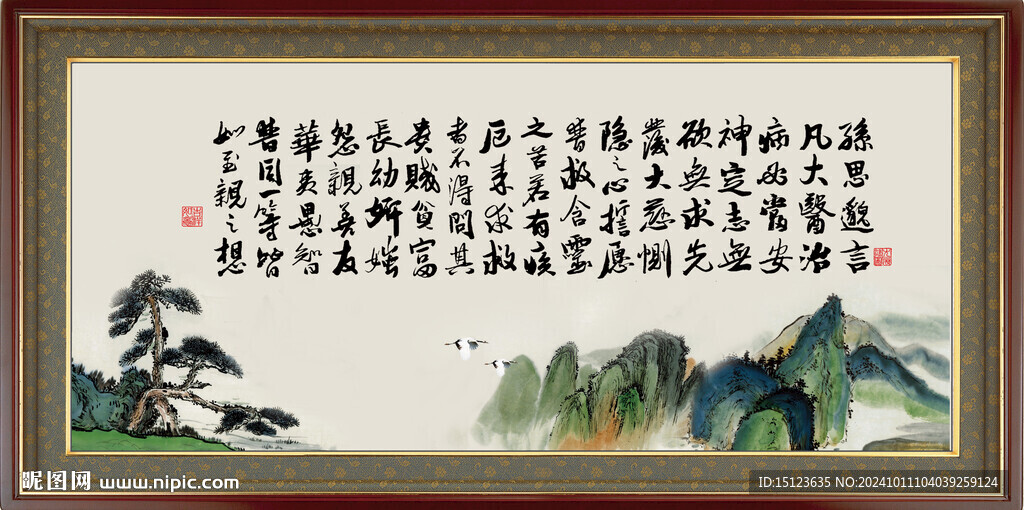 孫思邈言
凡大醫治
病必當安
神定志無
欲無求先
發大慈惻
隐之心誓愿
普救含靈
之苦若有疾
厄来求救
者不得問其
貴賤貧富
長幼妍媸
怨親善友
華夷愚智
普同一等皆
如至親之想
昵图网 www.nipic.com
ID:15123635 NO:20241011104039259124